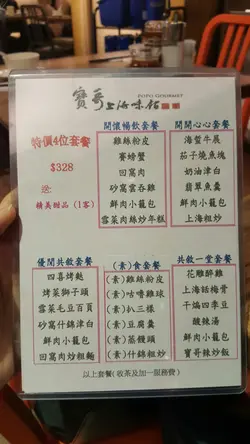 寶哥上海味佰
POPO GOURMET
特價4位套餐
$328
送:
精美甜品(1客)
開懷暢飲套餐
雞絲粉皮
賽螃蟹
回窩肉
砂窩雲吞雞
鮮肉小籠包
雪菜肉絲炒年糕
開開心心套餐
海蜇牛展
茄子燒魚塊
奶油津白
翡翠魚羹
鮮肉小籠包
上海粗炒
優閒共敘套餐
四喜烤麩
烤菜獅子頭
雪菜毛豆百頁
砂窩什錦津白
鮮肉小籠包
回窩肉炒粗麵
(素)食套餐
(素)雞絲粉皮
(素)咕嚕雞球
(素)扒三樣
(素)豆腐羹
(素)蒸饅頭
(素)什錦粗炒
共敘一堂套餐
花雕醉雞
上海話梅骨
干煸四季豆
酸辣湯
鮮肉小籠包
寶哥辣炒飯
以上套餐(收茶及加一服務費)